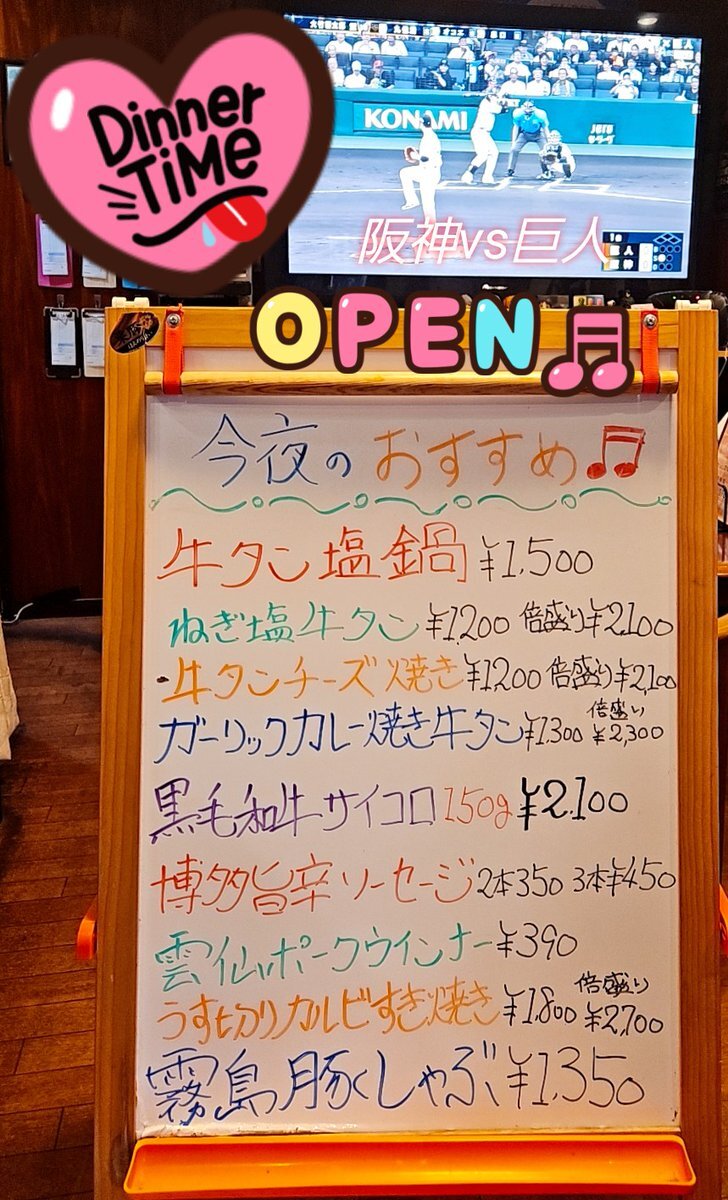 Dinner
TiME
KONAMI
阪神vs巨人
OPEN
今夜の おすすめ
牛タン塩鍋 ¥1,500
ねぎ塩牛タン ¥1200 倍盛り¥2,100
牛タンチーズ焼き ¥1200 倍盛り¥2,100
ガーリックカレー焼き牛タン ¥1300 倍盛り ¥2,300
黒毛和牛サイコロ 150g ¥2,100
博多旨辛ソーセージ 2本350 3本¥450
雲仙ポークウインナー ¥390
うす切りカルビすき焼き ¥1,800 倍盛り ¥2,700
霧島豚しゃぶ ¥1,350